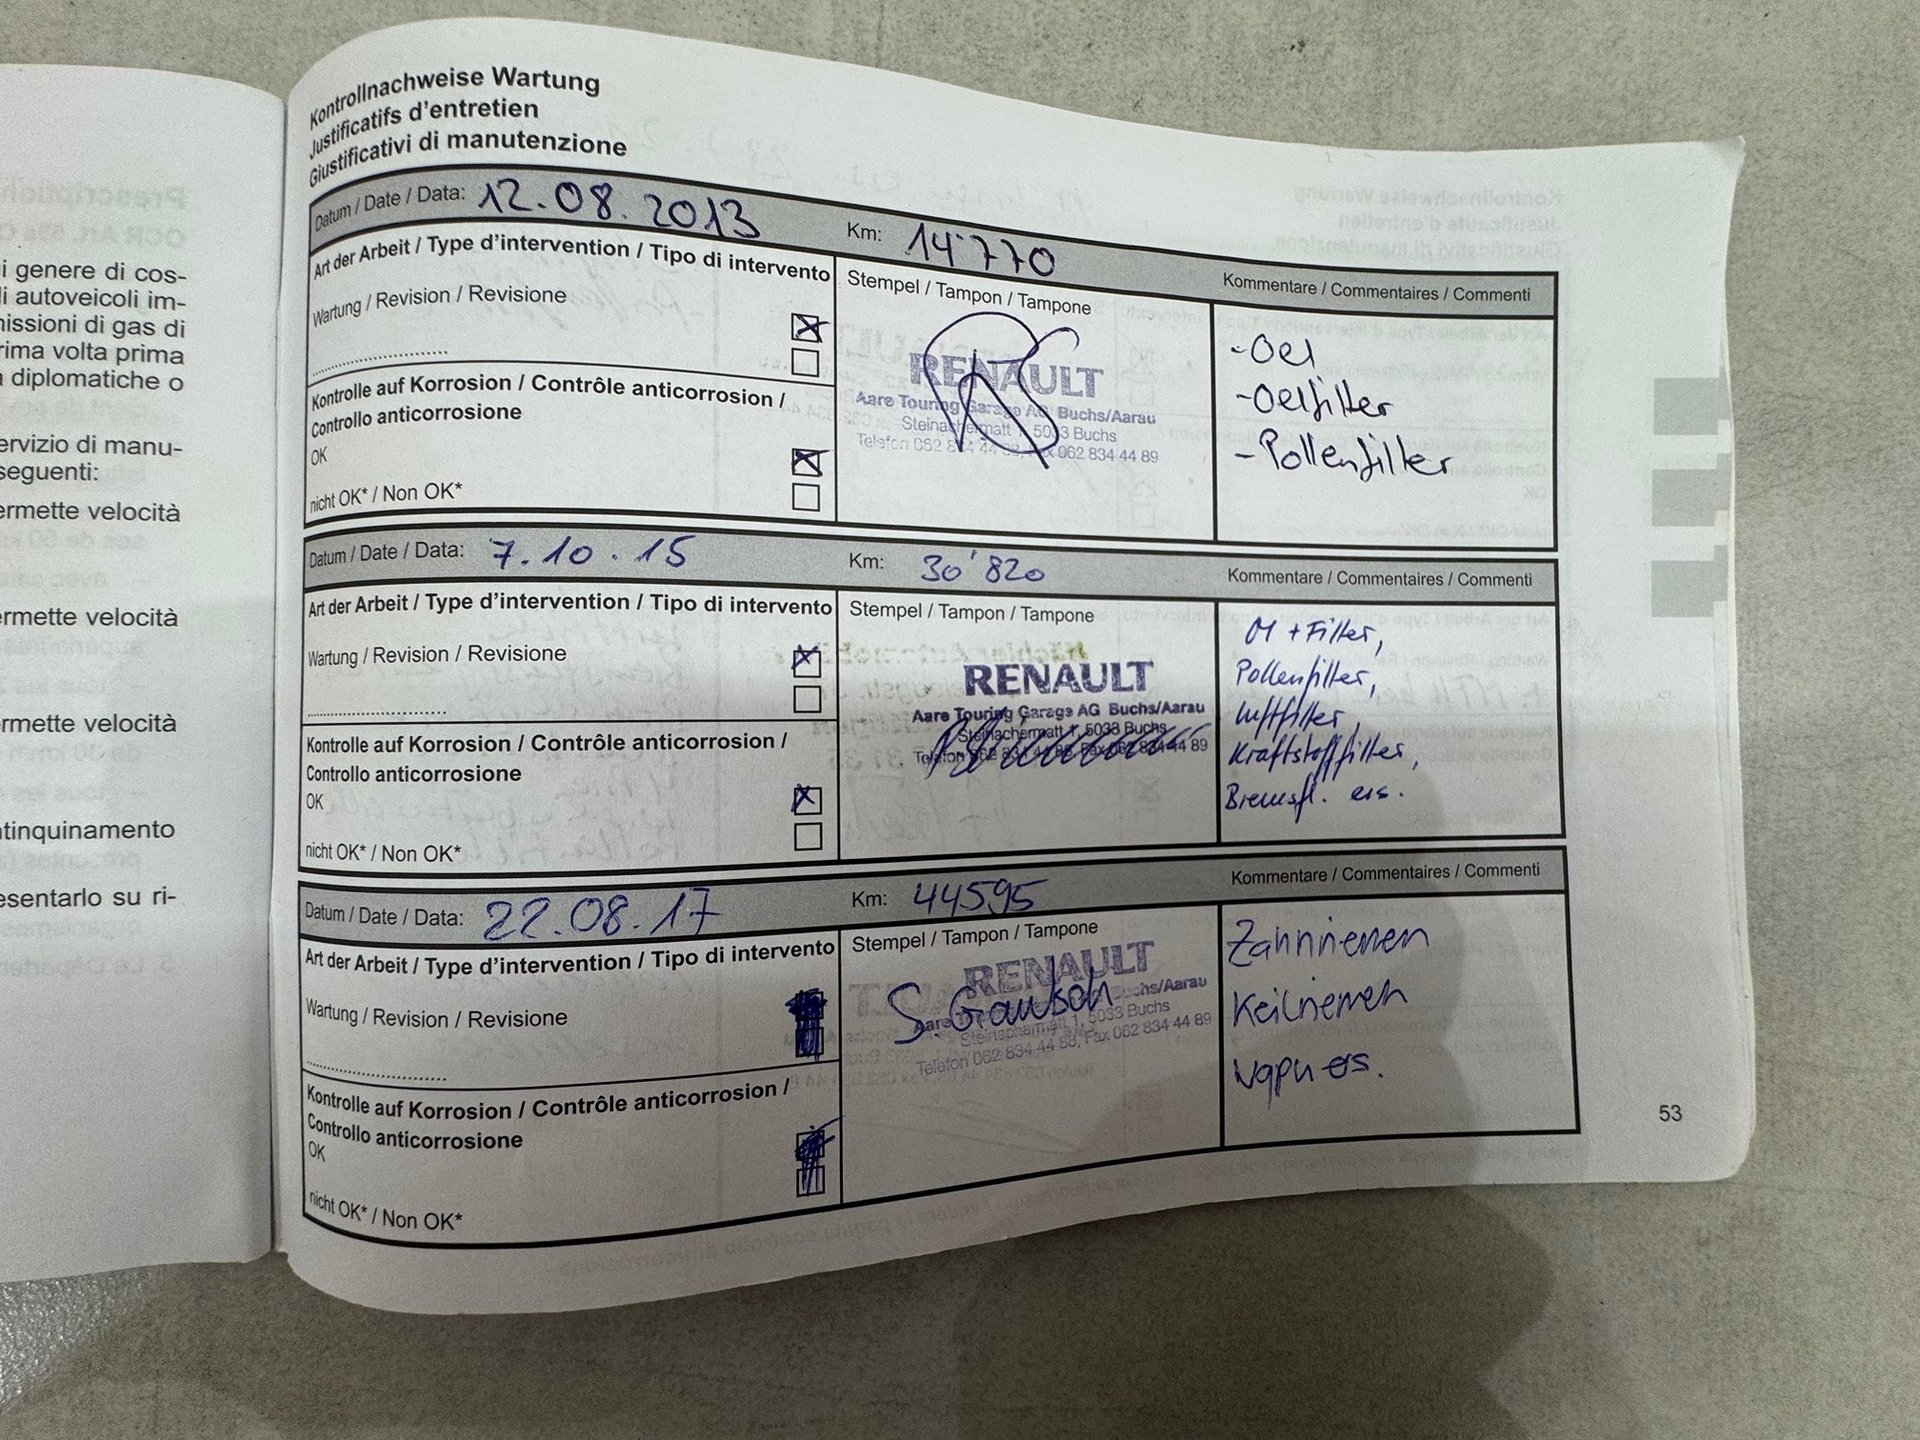 i genere di cos-
li autoveicoli im-
nissioni di gas di
rima volta prima
a diplomatiche o
ervizio di manu-
seguenti:
ermette velocità
ermette velocità
ermette velocità
ntinquinamento
esentarlo su ri-
Kontrollnachweise Wartung
Justificatifs d'entretien
Giustificativi di manutenzione
Datum / Date / Data: 12.08.2013 Km: 14'770
Kommentare / Commentaires / Commenti
Art der Arbeit / Type d'intervention / Tipo di intervento
Wartung / Revision / Revisione
Kontrolle auf Korrosion / Contrôle anticorrosion /
Controllo anticorrosione
OK
nicht OK* / Non OK*
Stempel / Tampon / Tampone
RENAULT
Aare Touring Garage AG Buchs/Aarau
Steinachermatt 1, 5033 Buchs
Telefon 062 834 44 88, Fax 062 834 44 89
-Oel
-Oelfilter
-Pollenfilter
Datum / Date / Data: 7.10.15 Km: 30'820
Kommentare / Commentaires / Commenti
Art der Arbeit / Type d'intervention / Tipo di intervento
Wartung / Revision / Revisione
Kontrolle auf Korrosion / Contrôle anticorrosion /
Controllo anticorrosione
OK
nicht OK* / Non OK*
Stempel / Tampon / Tampone
RENAULT
Aare Touring Garage AG Buchs/Aarau
Steinachermatt 1, 5033 Buchs
Telefon 062 834 44 88, Fax 062 834 44 89
Öl + Filter,
Pollenfilter,
Luftfilter,
Kraftstofffilter,
Bremsfl. ers.
Datum / Date / Data: 22.08.17 Km: 44595
Kommentare / Commentaires / Commenti
Art der Arbeit / Type d'intervention / Tipo di intervento
Wartung / Revision / Revisione
Kontrolle auf Korrosion / Contrôle anticorrosion /
Controllo anticorrosione
OK
nicht OK* / Non OK*
Stempel / Tampon / Tampone
RENAULT
Aare Buchs/Aarau
Steinachermatt 1, 5033 Buchs
Telefon 062 834 44 88, Fax 062 834 44 89
Zahnriemen
Keilriemen
ers.
53